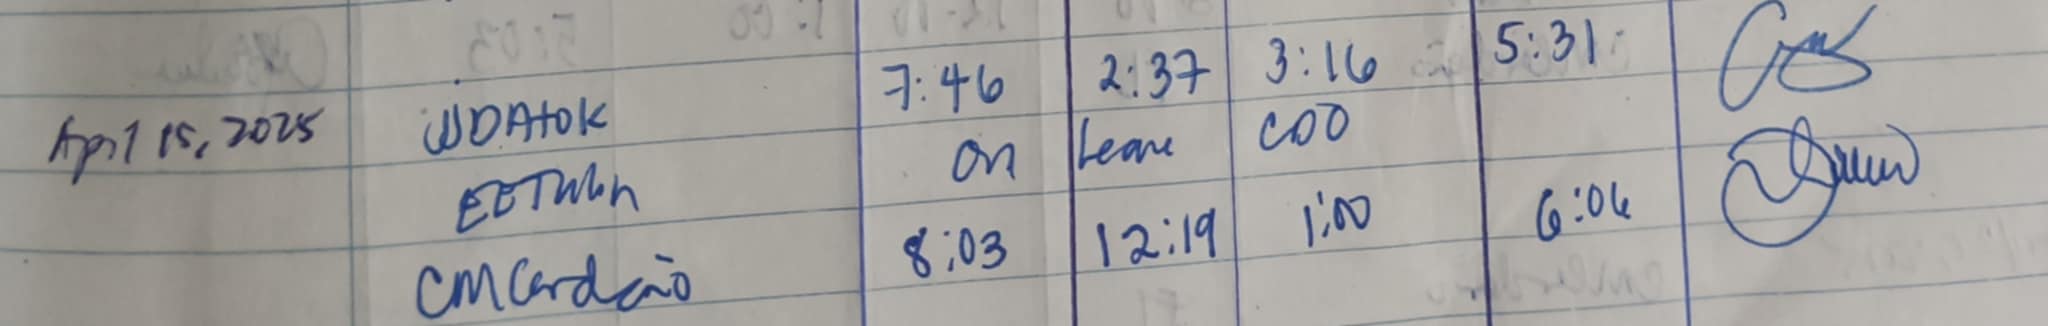 April 15, 2025 WDAtok 7:46 2:37 3:16 5:31
on Leave COO
CM 8:03 12:19 1:00 6:06